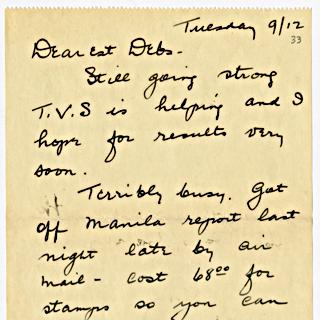 Tuesday 9/12
33
Dearest Debs-
Still going strong
T.V.S is helping and I
hope for results very
soon.
Terribly busy. Got
off Manila report last
night late by air
mail - cost 68⁰⁰ for
stamps so you can